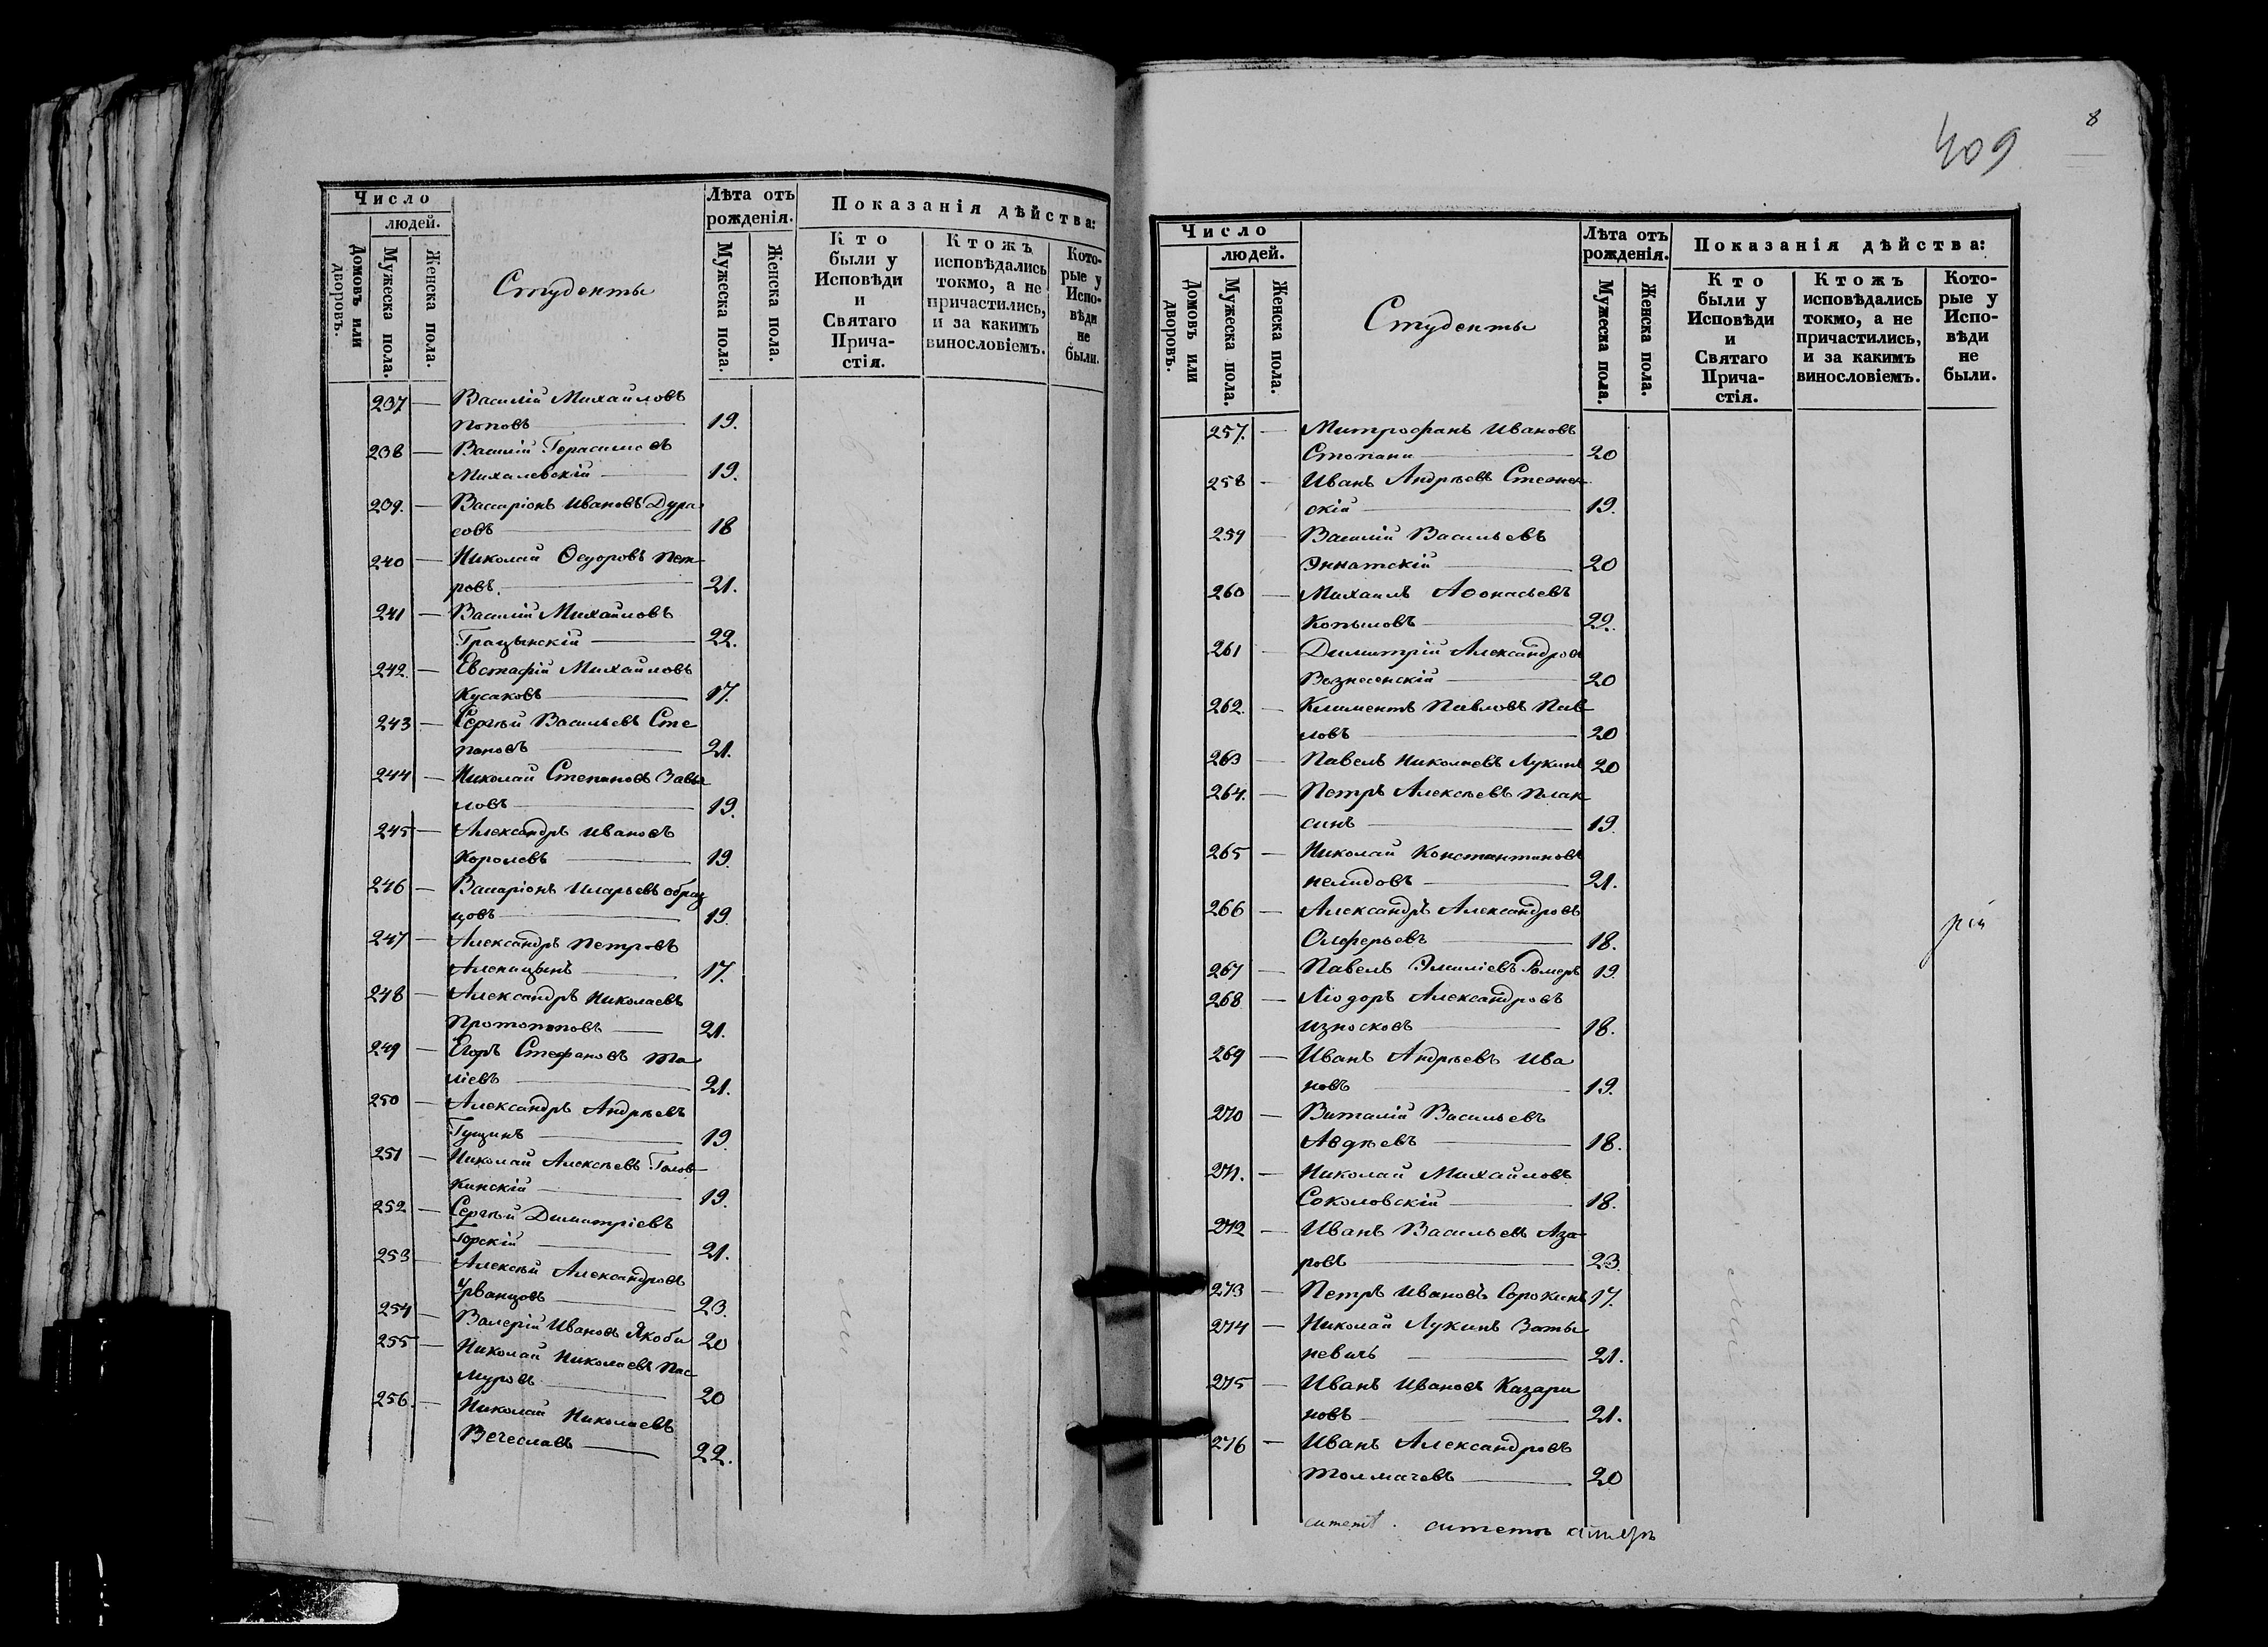 Число
людей.
Домовъ или дворовъ.
Мужеска пола.
Женска пола.
Студенты
Лѣта отъ
рожденія.
Мужеска пола.
Женска пола.
Показанія дѣйства:
Кто
были у
Исповѣди
и
Святаго
Прича-
стія.
Ктожъ
исповѣдались
токмо, а не
причастились,
и за какимъ
винословіемъ.
Кото-
рые у
Испо-
вѣди
не
были.
237 — Василій Михайловъ
Поповъ — 19.
238 — Василій Герасимовъ
Михалевскій — 19.
239. — Виссаріонъ Ивановъ Дура
совъ — 18
240 — Николай Ѳедоровъ Пет
ровъ. — 21.
241 — Василій Михайловъ
Грацынскій — 22.
242. — Евстафій Михайловъ
Кусаковъ — 17.
243 — Сергѣй Васильевъ Сте
пановъ — 21.
244 — Николай Степановъ Завья
ловъ — 19.
245 — Александръ Ивановъ
Королевъ — 19.
246 — Иларьевъ Образ
цовъ — 19.
247 — Александръ Петровъ
Алекицынъ — 17.
248 — Александръ Николаевъ
Протопоповъ — 21.
249 — Егоръ Стефановъ Та
ліевъ — 21.
250 — Александръ Андреевъ
Гущинъ — 19.
251 — Николай Алексѣевъ Голов
кинскій — 19.
252 — Сергѣй Димитріевъ
Горскій — 21.
253 — Алексѣй Александровъ
Урванцовъ — 23.
254 — Валерій Ивановъ Якоби 20
255 — Николай Николаевъ Пас
муровъ — 20
256. — Николай Николаевъ
Вечеславъ — 22.
409
8
Число
людей.
Домовъ или дворовъ.
Мужеска пола.
Женска пола.
Студенты
Лѣта отъ
рожденія.
Мужеска пола.
Женска пола.
Показанія дѣйства:
Кто
были у
Исповѣди
и
Святаго
Прича-
стія.
Ктожъ
исповѣдались
токмо, а не
причастились,
и за какимъ
винословіемъ.
Кото-
рые у
Испо-
вѣди
не
были.
257. — Митрофанъ Ивановъ
Стопани — 20
258 — Иванъ Андреевъ
скій — 19.
259 — Василій Васильевъ
Эннатскій — 20
260 — Михаилъ Аѳонасьевъ
Копыловъ — 22.
261 — Димитрій Александровъ
Вознесенскій — 20
262. — Климентъ Павловъ Пав
ловъ — 20
263 — Павелъ Николаевъ Лукинъ 20
264. — Петръ Алексѣевъ Плак
синъ — 19.
265 — Николай Константиновъ
Нелидовъ — 21.
266 — Александръ Александровъ
Олферьевъ — 18.
267 — Павелъ Эмиліевъ Ромеръ 19.
268 — Ліодоръ Александровъ
Износковъ — 18.
269 — Иванъ Андреевъ Ива
новъ — 19.
270 — Виталій Васильевъ
Авдѣевъ — 18.
271. — Николай Михайловъ
Соколовскій — 18.
272 — Иванъ Васильевъ Аза
ровъ — 23.
273 — Петръ Ивановъ Сорокинъ 17.
274 — Николай Лукинъ Заты
невичъ — 21.
275 — Иванъ Ивановъ Казари
новъ — 21.
276 — Иванъ Александровъ
Толмачевъ — 20
рій